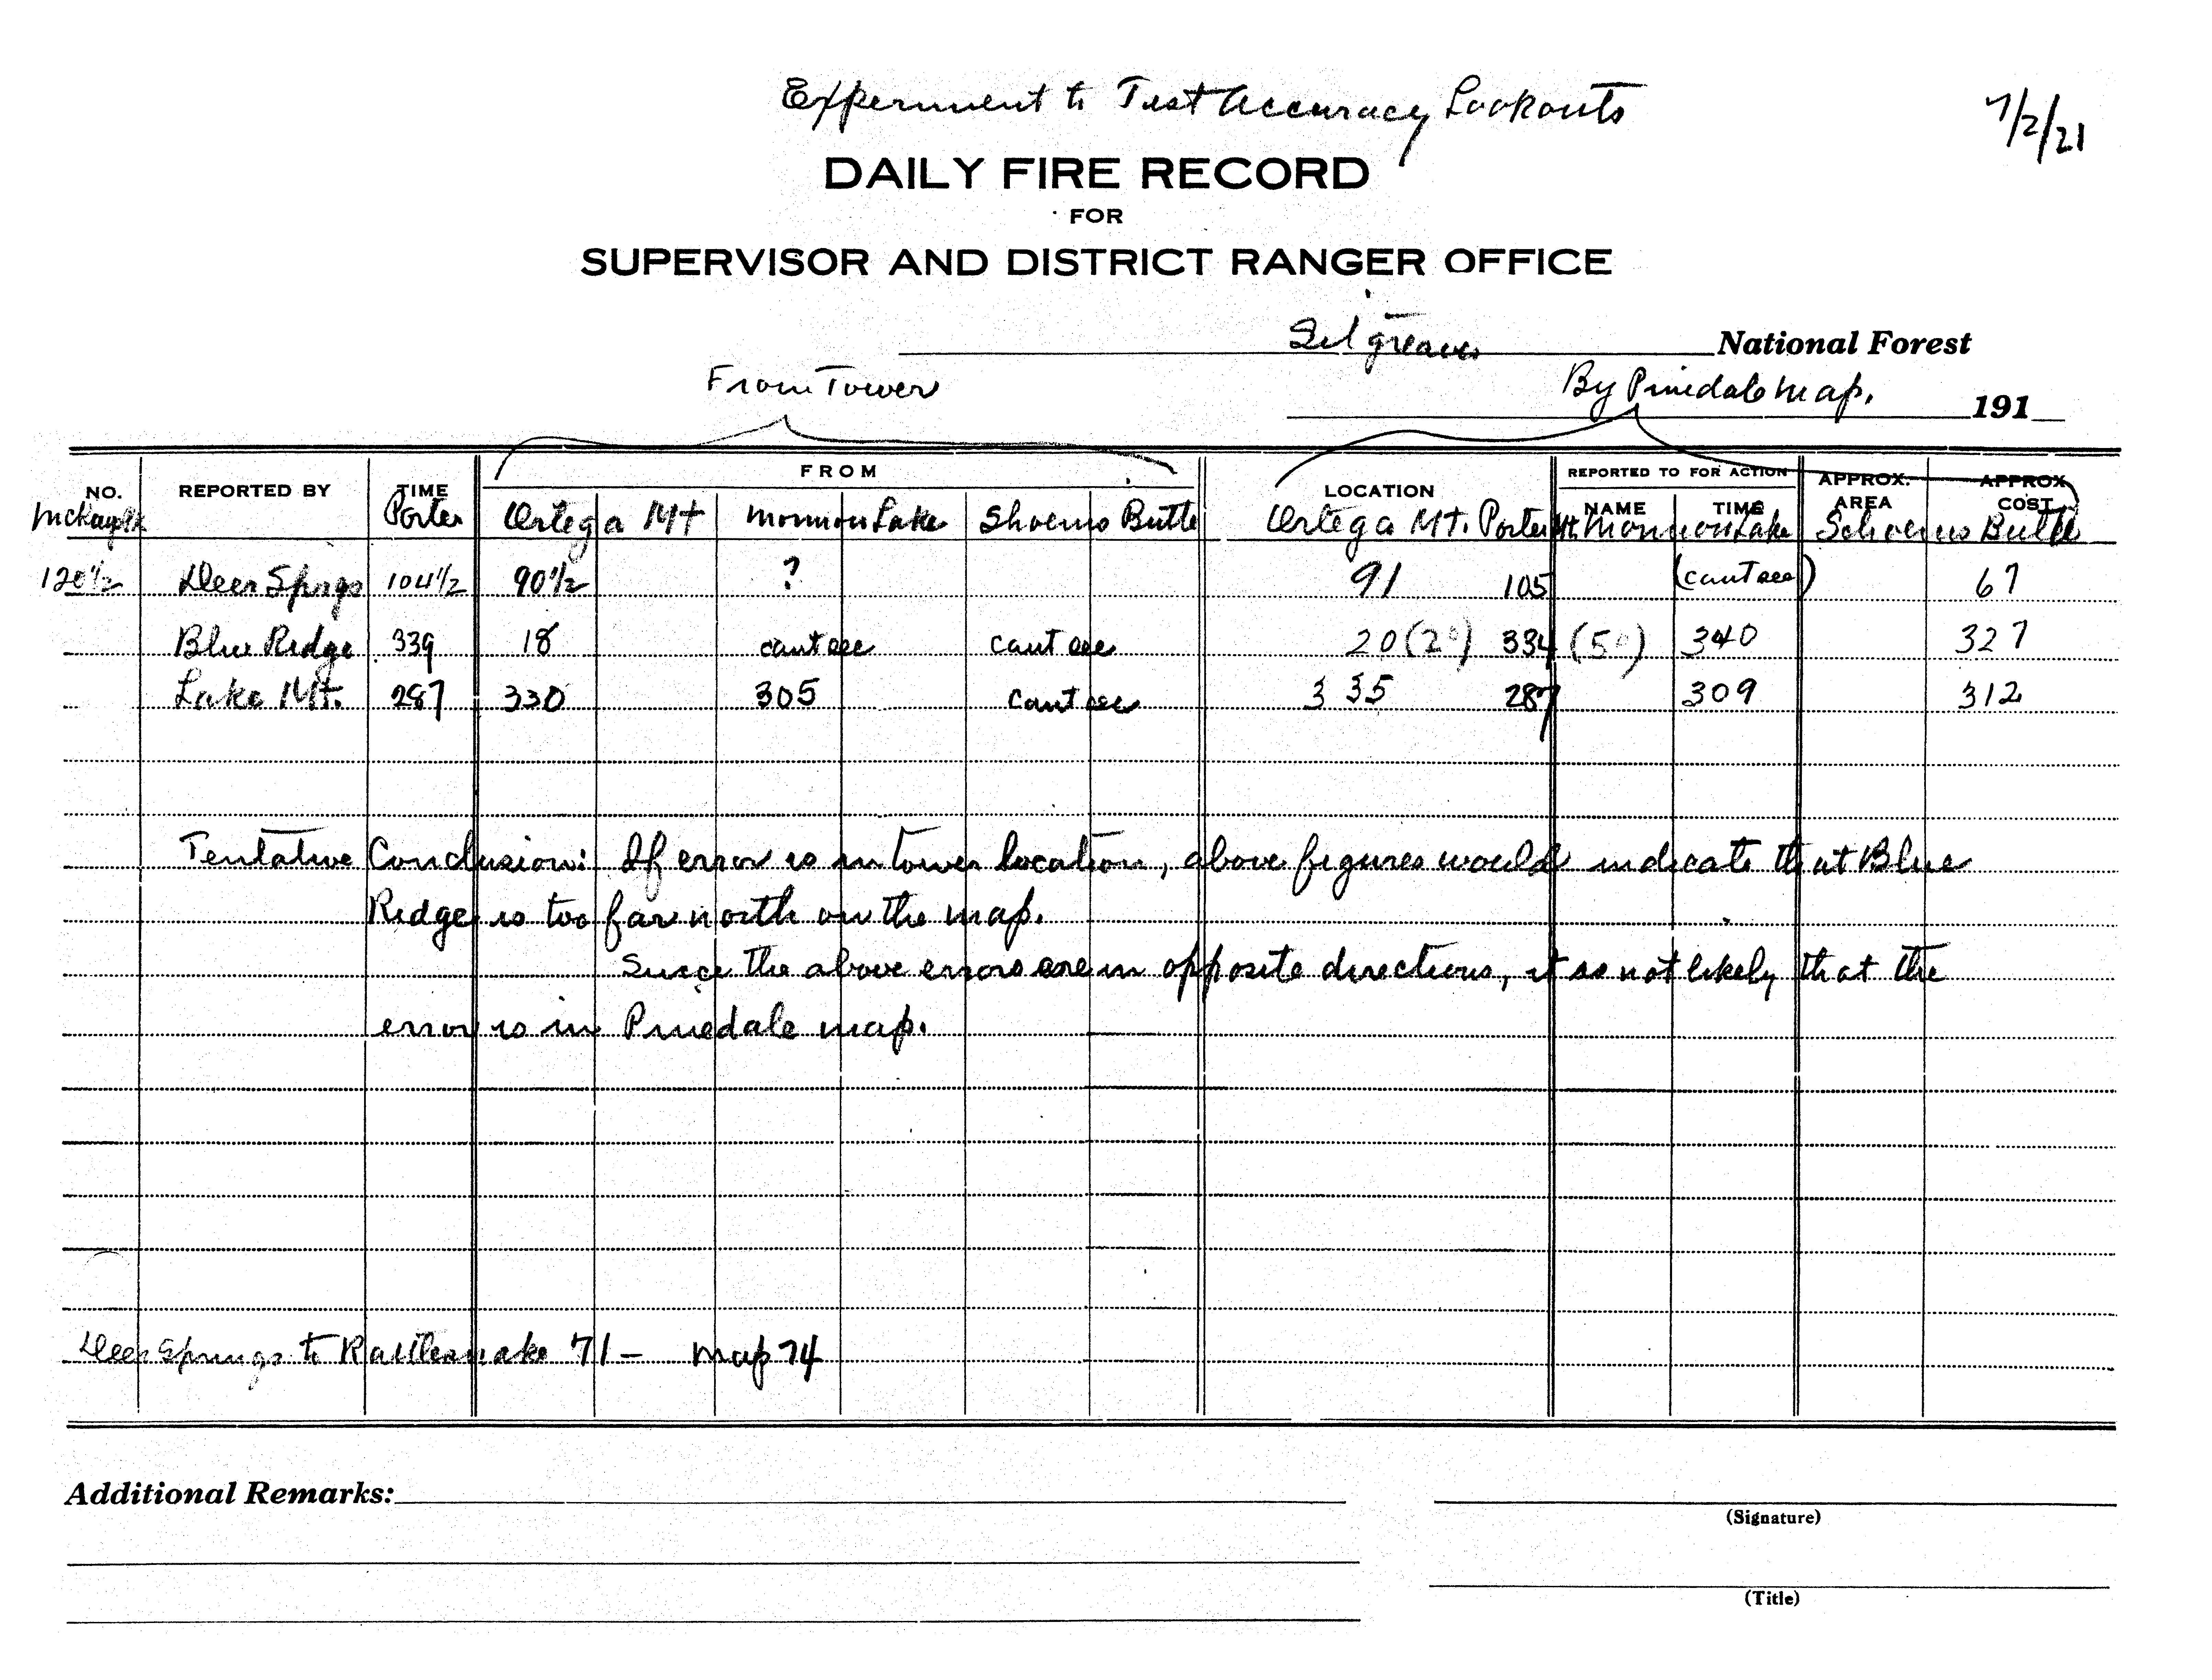 Experiment to Test Accuracy Lookouts
7/2/21
DAILY FIRE RECORD
FOR
SUPERVISOR AND DISTRICT RANGER OFFICE
Sitgreaves National Forest
From Tower By Pinedale Map. 191
NO. REPORTED BY TIME FROM LOCATION REPORTED TO FOR ACTION NAME TIME APPROX. AREA APPROX COST
McKay Porter Ortega Mt Mormon Lake Shoens Butte Ortega Mt. Porter Mt. Mormon Lake Schoens Butte
120 1/2 Deer Sprgs 104 1/2 90 1/2 ? 91 105 (cant see) 67
Blue Ridge 339 18 cant see cant see 20 (2°) 334 (5°) 340 327
Lake Mt. 287 330 305 cant see 335 287 309 312
Tentative Conclusion: If error is in tower location, above figures would indicate that Blue
Ridge is too far north on the map.
Since the above errors are in opposite directions, it is not likely that the
error is in Pinedale map.
Deer Springs to Rattlesnake 71 – map 74
Additional Remarks:
(Signature)
(Title)